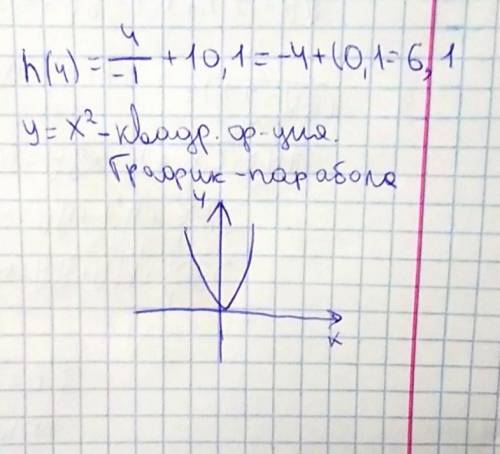 h(4) = 4/-1 + 10,1 = -4 + 10,1 = 6,1
y = x² - квадр. ф-ция.
График - парабола
y
x